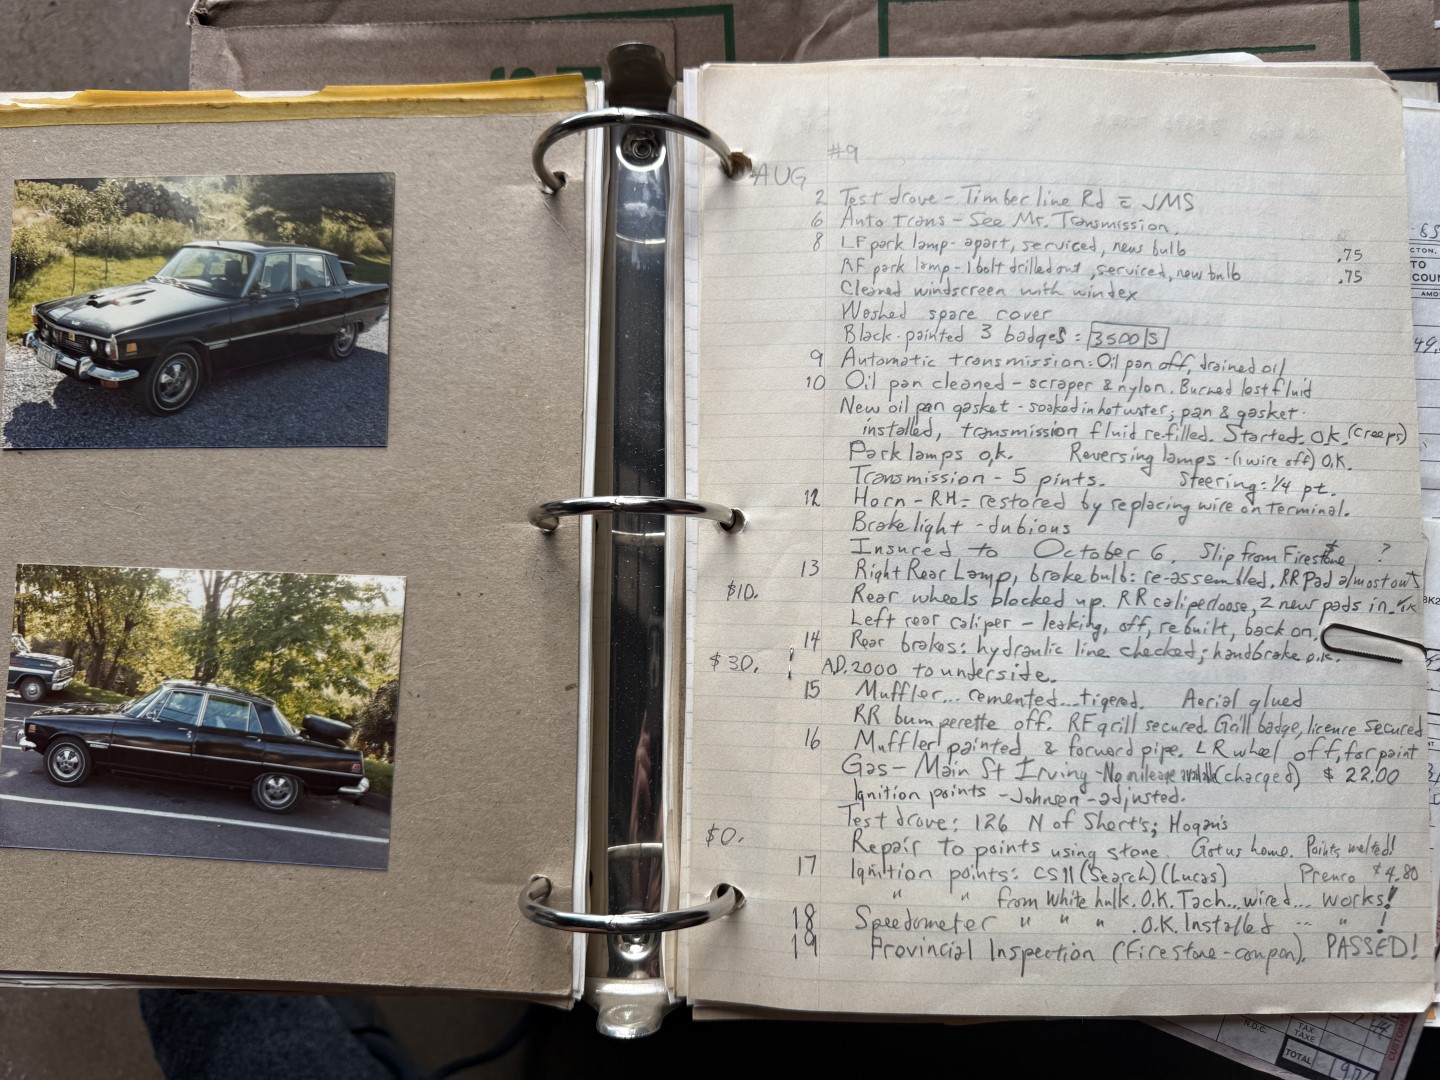 #9
AUG
2 Test drove - Timberline Rd c̄ JMS
6 Auto trans - See Mr. Transmission.
8 LF park lamp - apart, serviced, new bulb .75
RF park lamp - 1 bolt drilled out, serviced, new bulb .75
Cleaned windscreen with windex
Washed spare cover
Black-painted 3 badges: 3500 S
9 Automatic transmission: Oil pan off, drained oil
10 Oil pan cleaned - scraper & nylon. Burned lost fluid
New oil pan gasket - soaked in hot water; pan & gasket
installed, transmission fluid refilled. Started. OK. (creeps)
Park lamps o.k. Reversing lamps - (1 wire off) O.K.
Transmission - 5 pints. Steering: 1/4 pt.
12 Horn - RH - restored by replacing wire on terminal.
Brake light - dubious
Insured to October 6, Slip from Firestone ?
13 Right Rear Lamp, brake bulb: re-assembled. RR Pad almost out
$10. Rear wheels blocked up. RR caliper loose, 2 new pads in.
Left rear caliper - leaking, off, rebuilt, back on.
14 Rear brakes: hydraulic line checked; handbrake o.k.
$30. ! AD.2000 to underside.
15 Muffler... cemented...tigered. Aerial glued
RR bumperette off. RF grill secured. Grill badge, licence secured
16 Muffler painted, & forward pipe. LR wheel off, for paint
Gas - Main St Irving - No mileage available (charged) $ 22.00
Ignition points - Johnson - adjusted.
Test drove: 126 N of Short's; Hogan's
$0. Repair to points using stone. Got us home. Points melted!
17 Ignition points: CS11 (Search) (Lucas) Prenco $4.80
" " from White hulk. O.K. Tach... wired... works!
18 Speedometer " " " . O.K. Installed ... " !
19 Provincial Inspection (Firestone - coupon). PASSED!
TO
TAX
TAXE
TOTAL